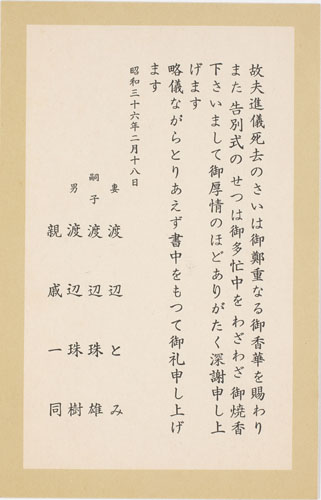 故夫進儀死去のさいは御鄭重なる御香華を賜わり
また告別式のせつは御多忙中をわざわざ御焼香
下さいまして御厚情のほどありがたく深謝申し上
げます
略儀ながらとりあえず書中をもつて御礼申し上げ
ます
昭和三十六年二月十八日
妻 渡辺とみ
嗣子 渡辺珠雄
男 渡辺珠樹
親戚一同